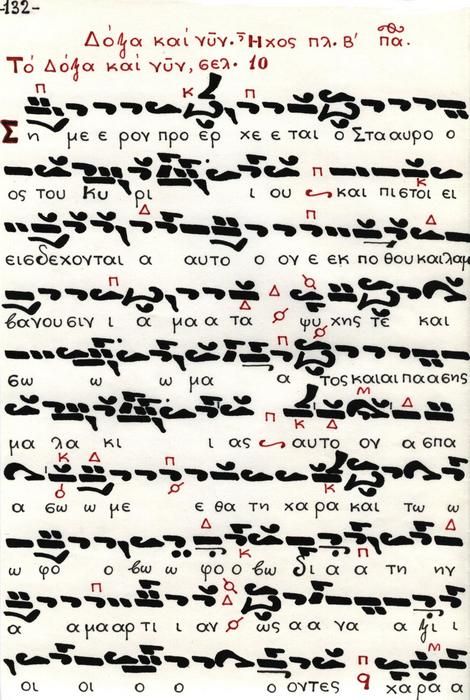 -132-
Δόξα καί νῦν. Ἦχος πλ. Β΄ πα.
Τό Δόξα καί νῦν, σελ. 10
Π Κ Π
Ση με ε ρον προ ερ χε ε ται ὁ Σταυρο ο
Π Κ
ος του Κυ ρι ι ου και πιστοι ει
Δ Π Δ
εισδεχονται α αυτο ο ον ε εκ πο θου και λαμ
Π Δ Δ
βανουσιν ι α μα α τα ψυ χης τε και
Π
σω ω ω μα α τος και αι πα α σης
Π Κ Δ Μ Δ
μα λα κι ι ας αυτο ον α σπα
Κ Δ Π Κ
α σω ω με ε θα τη χα ρα και τω ω
Δ Κ Π
ω φο ο βω ω φο ο βω δι α α τη ην
Π Δ
α α μα αρ τι ι αν ως α α να α ξι ι
Π Μ
οι οι ο ο ο οντες χαρα α